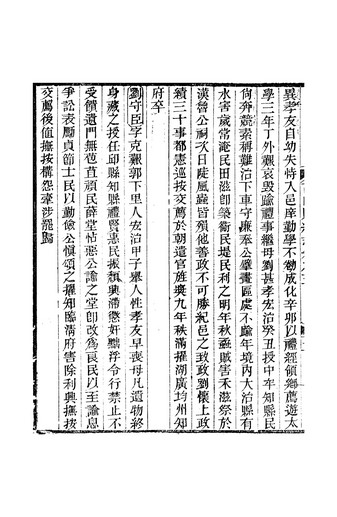 異孝友自幼失恃入邑庠勤學不勌成化辛卯以禮經領鄉薦遊太
學三年丁外艱哀毀踰禮事繼母劉甚孝宏治癸丑授中牟知縣民
俗奔競素稱難治下車守廉奉公釐畫區處不踰年境内大治縣有
水害歲常淹民田滋卽築衛民堤民利之明年秋蝗害禾滋祭於
漢魯公祠次日疾風蝗皆殞他善政不可勝紀邑之政政劉懷上政
績三十事都憲巡按交薦於朝遣官旌奬九年秩滿擢湖廣均州知
府卒
劉守臣字克艱郭下里人宏治甲子舉人性孝友早喪母凡遺物終
身藏之授任邱縣知縣禮賢惠民振頽興滯懲奸黜浮令行禁止不
受饋遺門無苞苴頑民薛堂怙惡公諭之堂卽改為良民以至諭息
爭訟表勵貞節士民以勤儉公慎頌之擢知臨清府害除利興撫按
交薦後値撫按搆怨牽涉罷歸